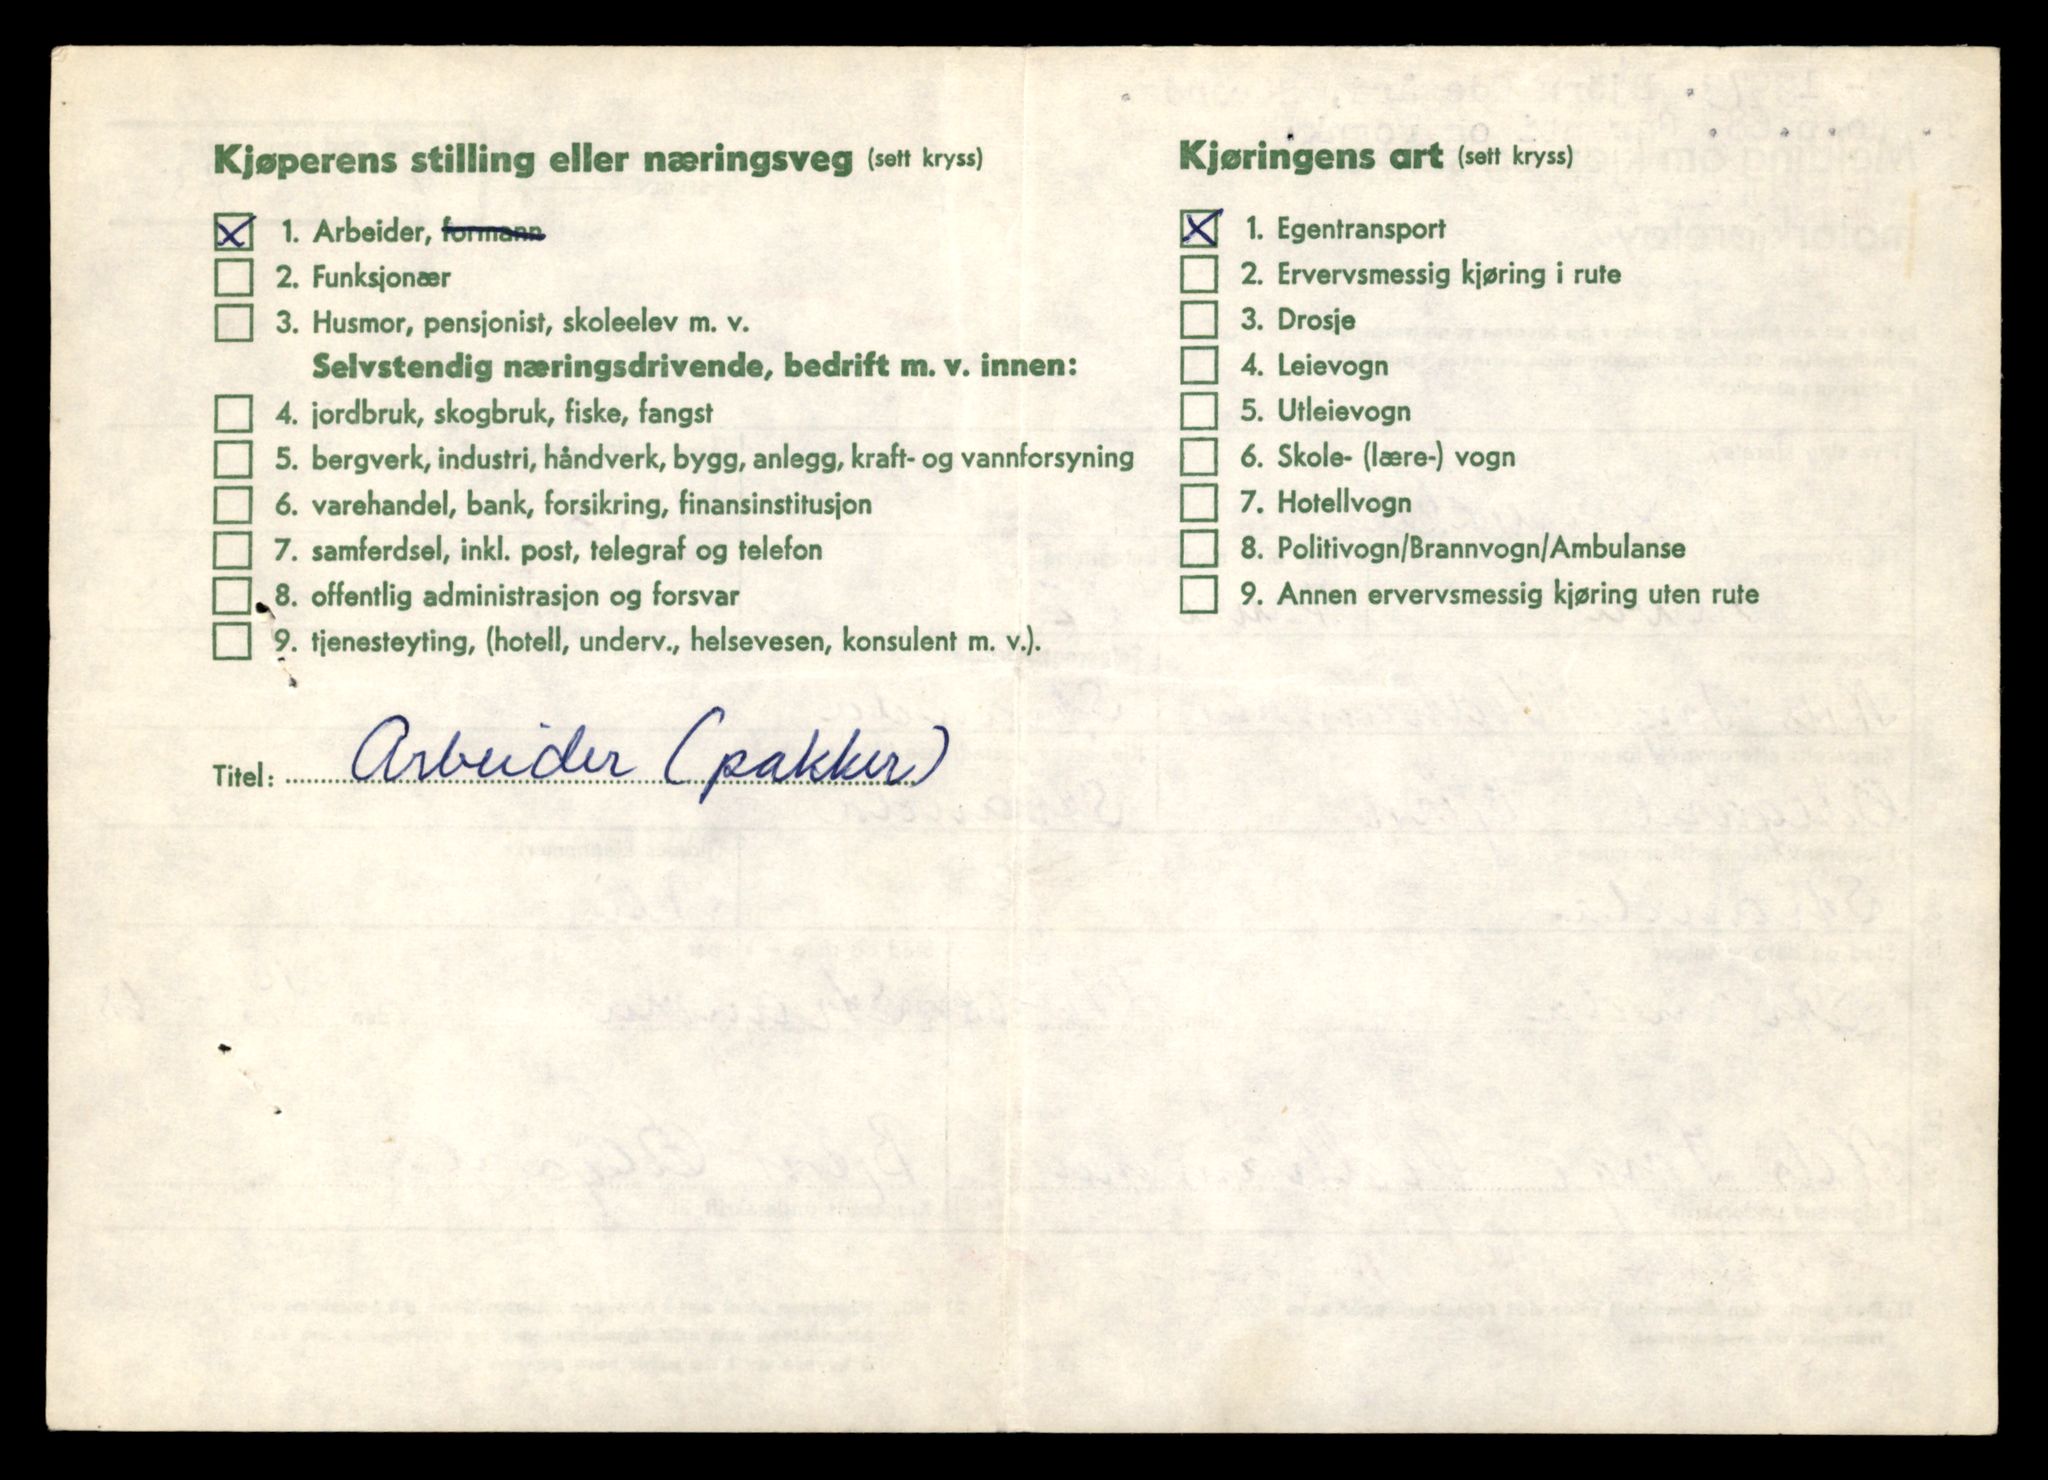 Kjøperens stilling eller næringsveg (sett kryss)
1. Arbeider, formann
2. Funksjonær
3. Husmor, pensjonist, skoleelev m. v.
Selvstendig næringsdrivende, bedrift m. v. innen:
4. jordbruk, skogbruk, fiske, fangst
5. bergverk, industri, håndverk, bygg, anlegg, kraft- og vannforsyning
6. varehandel, bank, forsikring, finansinstitusjon
7. samferdsel, inkl. post, telegraf og telefon
8. offentlig administrasjon og forsvar
9. tjenesteyting, (hotell, underv., helsevesen, konsulent m. v.).
Titel: Arbeider (pakker)
Kjøringens art (sett kryss)
1. Egentransport
2. Ervervsmessig kjøring i rute
3. Drosje
4. Leievogn
5. Utleievogn
6. Skole- (lære-) vogn
7. Hotellvogn
8. Politivogn/Brannvogn/Ambulanse
9. Annen ervervsmessig kjøring uten rute